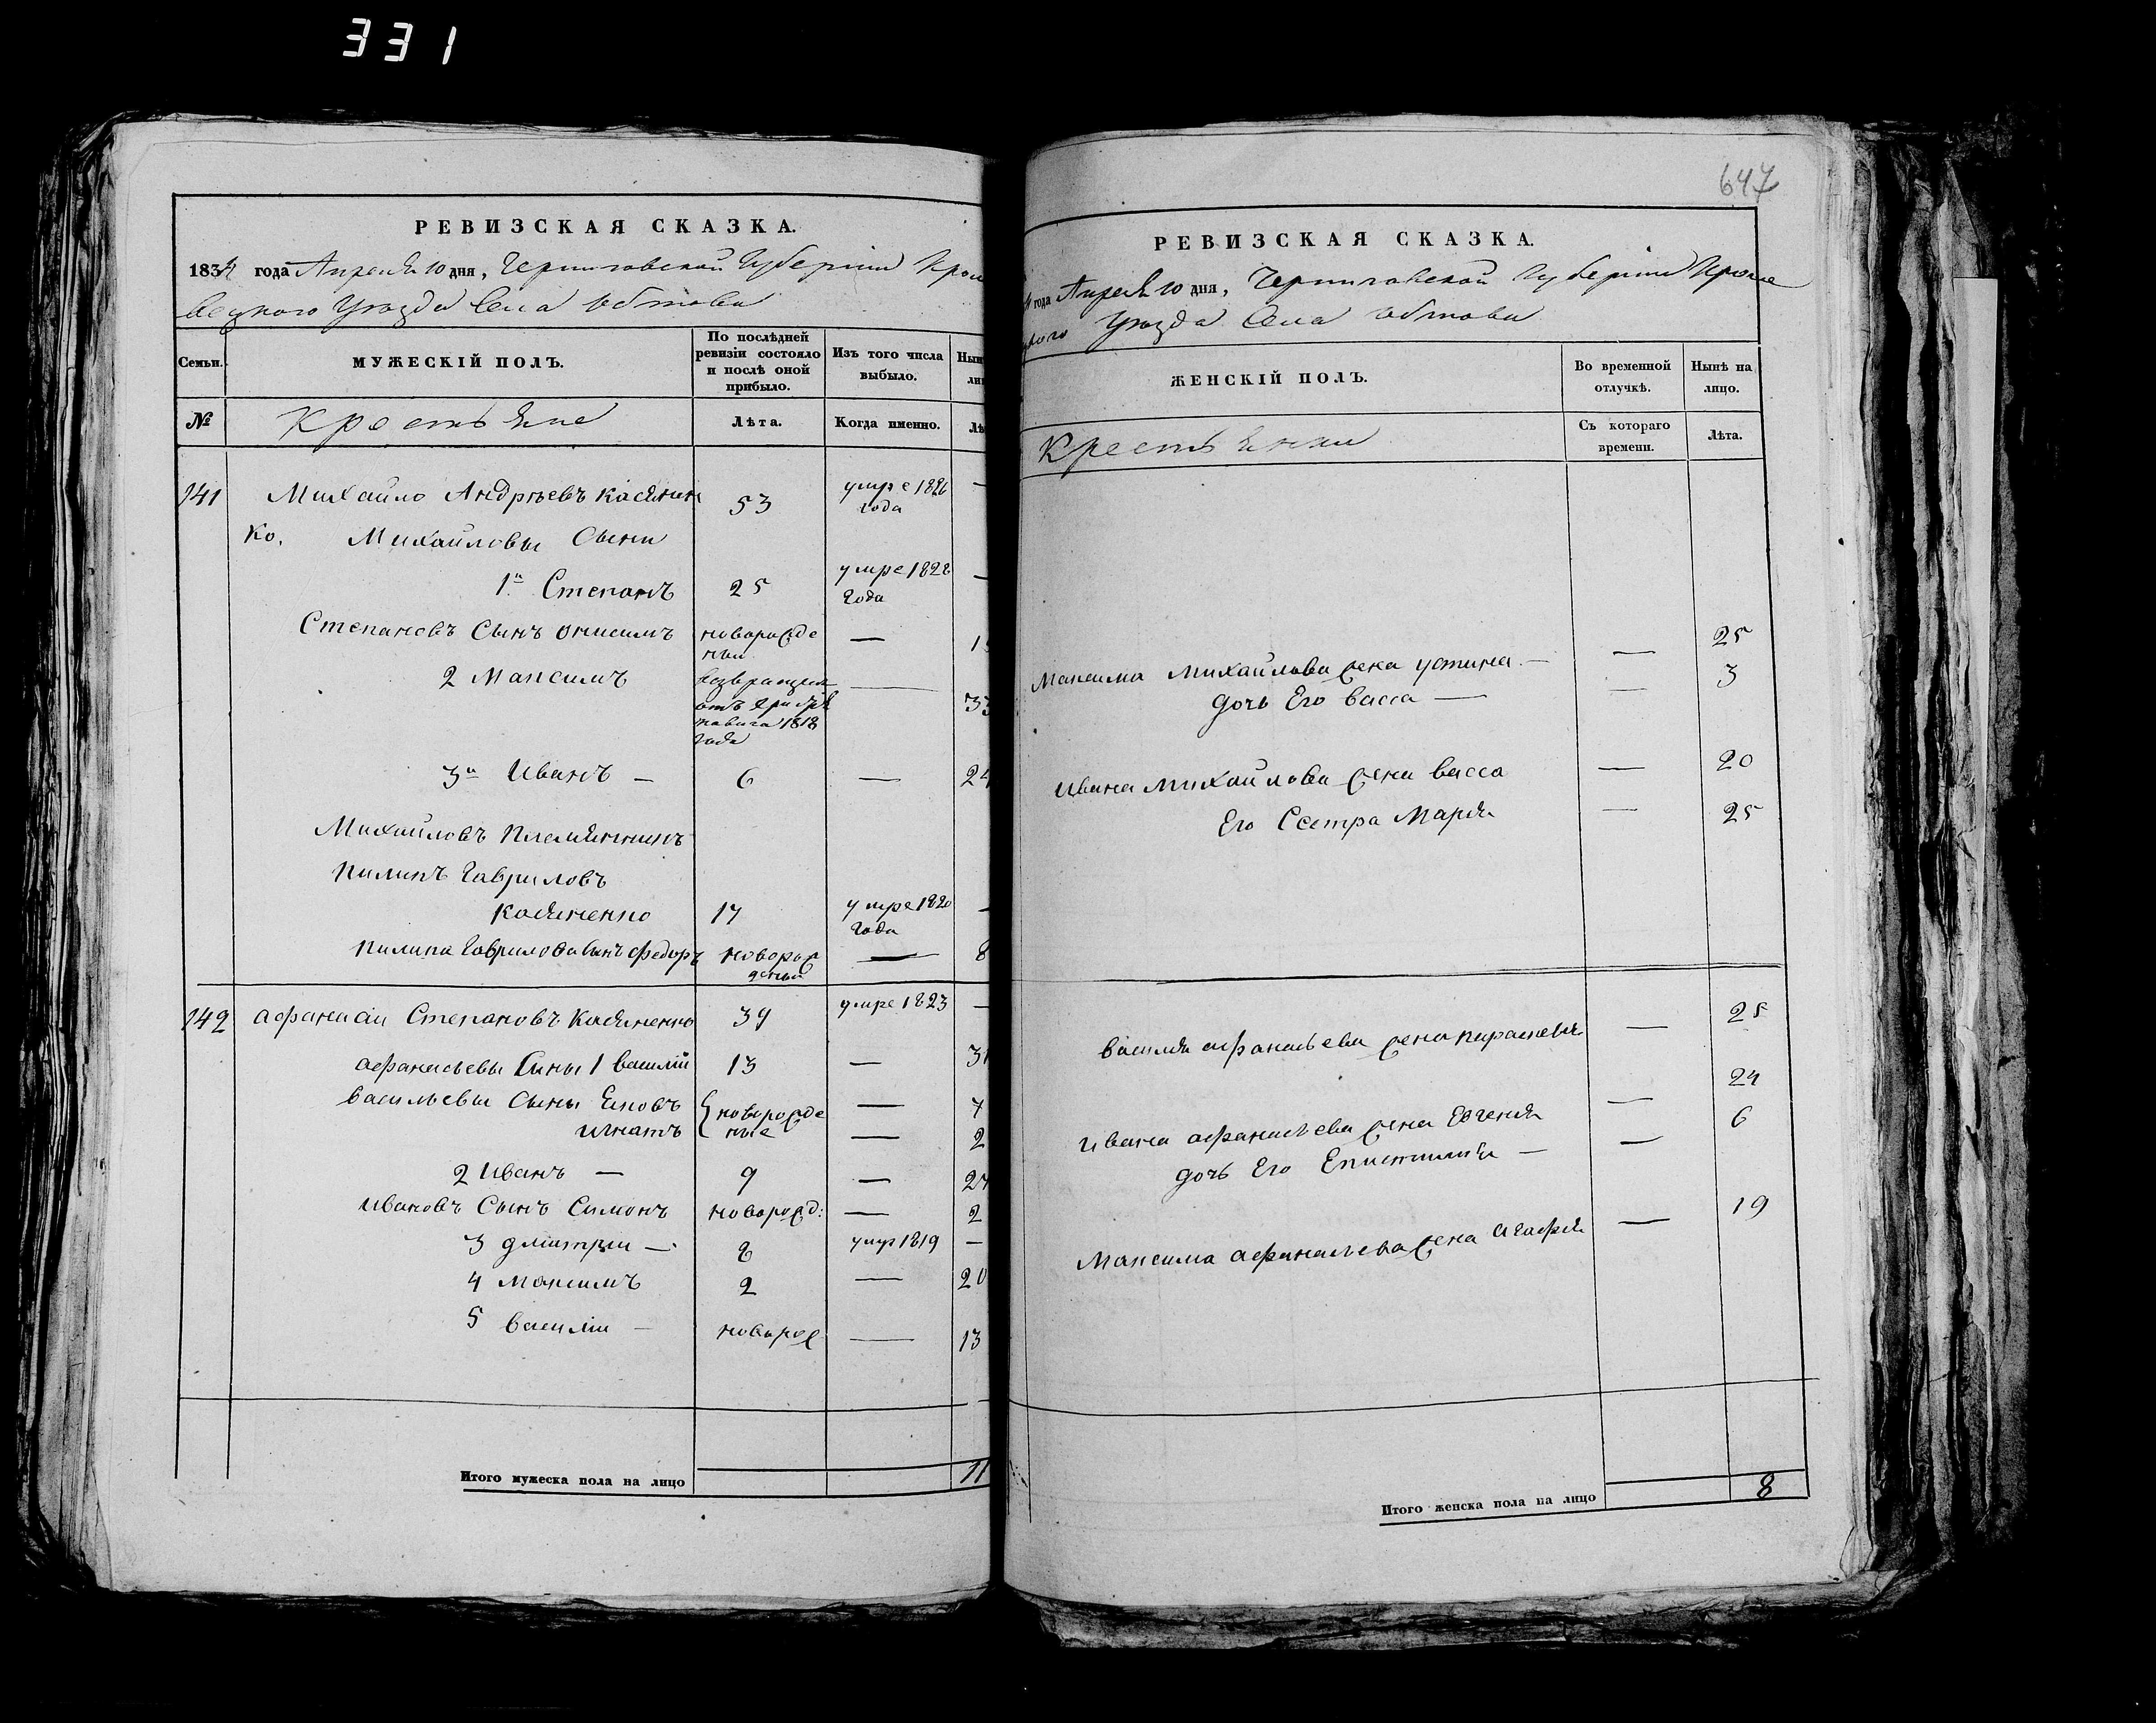 331
РЕВИЗСКАЯ СКАЗКА.
1834 года Апреля 10 дня, Черниговской Губернии Кроле
вецкого Уезда Села Обтова
Семьи.
МУЖЕСКІЙ ПОЛЪ.
По послѣдней ревизіи состояло и послѣ оной прибыло.
Изъ того числа выбыло.
№
Крестьяне
Лѣта.
Когда именно.
141 Михайло Андрѣевъ Касянен 53 умре 1826 —
ко. Михайловы Сыни года
1й Степанъ 25 умре 1828 —
года
Степановъ Сынъ Онисимъ новорожде — 1
ныи
2 Максимъ возвращен — 33
отъ
1818
года
3й Иванъ — 6 — 24
Михайловъ племянникъ
Пилипъ Гавриловъ
Касяненко 17 умре 1820 —
года
Пилипа Гаврилова Сынъ Федоръ новорож — 8
деныи
142 Афанасіи Степановъ Касяненко 39 умре 1823 —
Афанасьевы Сыны 1 Василій 13 — 31
Васильевы Сыны Яковъ новорожде — 7
Игнатъ ные — 2
2 Иванъ — 9 — 27
Ивановъ Сынъ Симонъ новорожд: — 2
3 Дмитріи — 8 умр 1819 —
4 Максимъ 2 — 20
5 Василіи — новорож — 13
Итого мужеска пола на лицо 11
647
РЕВИЗСКАЯ СКАЗКА.
года Апреля 10 дня, Черниговской Губернии Кроле
Уезда Села Обтова
ЖЕНСКІЙ ПОЛЪ.
Во временной отлучкѣ.
Нынѣ на лицо.
Крестьянки
Съ котораго времени.
Лѣта.
Максима Михайлова жена Устина — — 25
дочь Его Васса — — 3
Ивана Михайлова жена Васса — 20
Его Сестра Марія — 25
Василия Афанасьева жена Параскевія — 25
Ивана Афанасьева жена Евгенія — 24
дочь Его Епистимия — — 6
Максима Афанасьева жена Агафія — 19
Итого женска пола на лицо 8